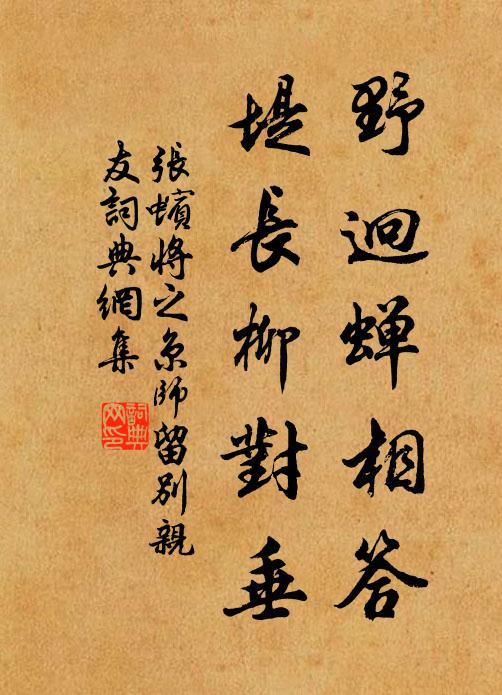 野迥蝉相答
堤長柳對垂
張蠙將之京師留別親
友詞典網集
詞典
网印